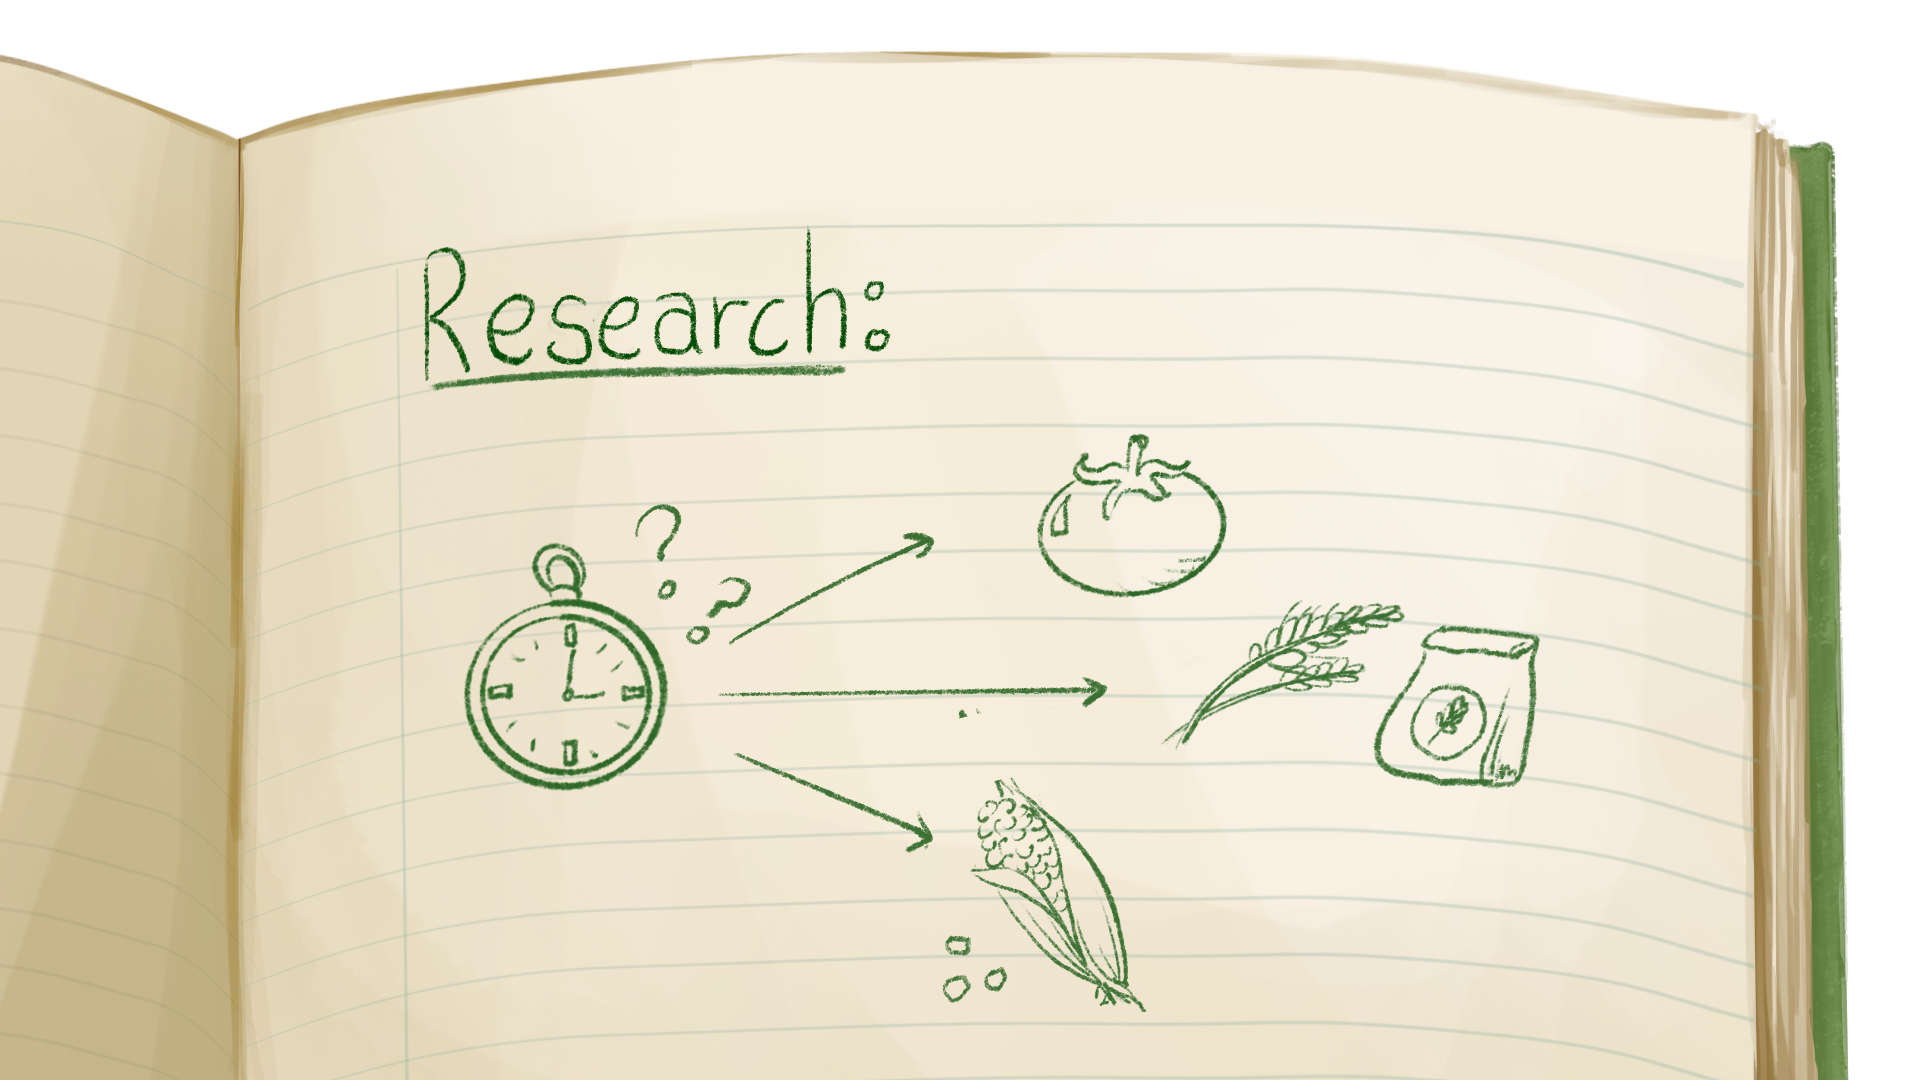 Research:
? ?